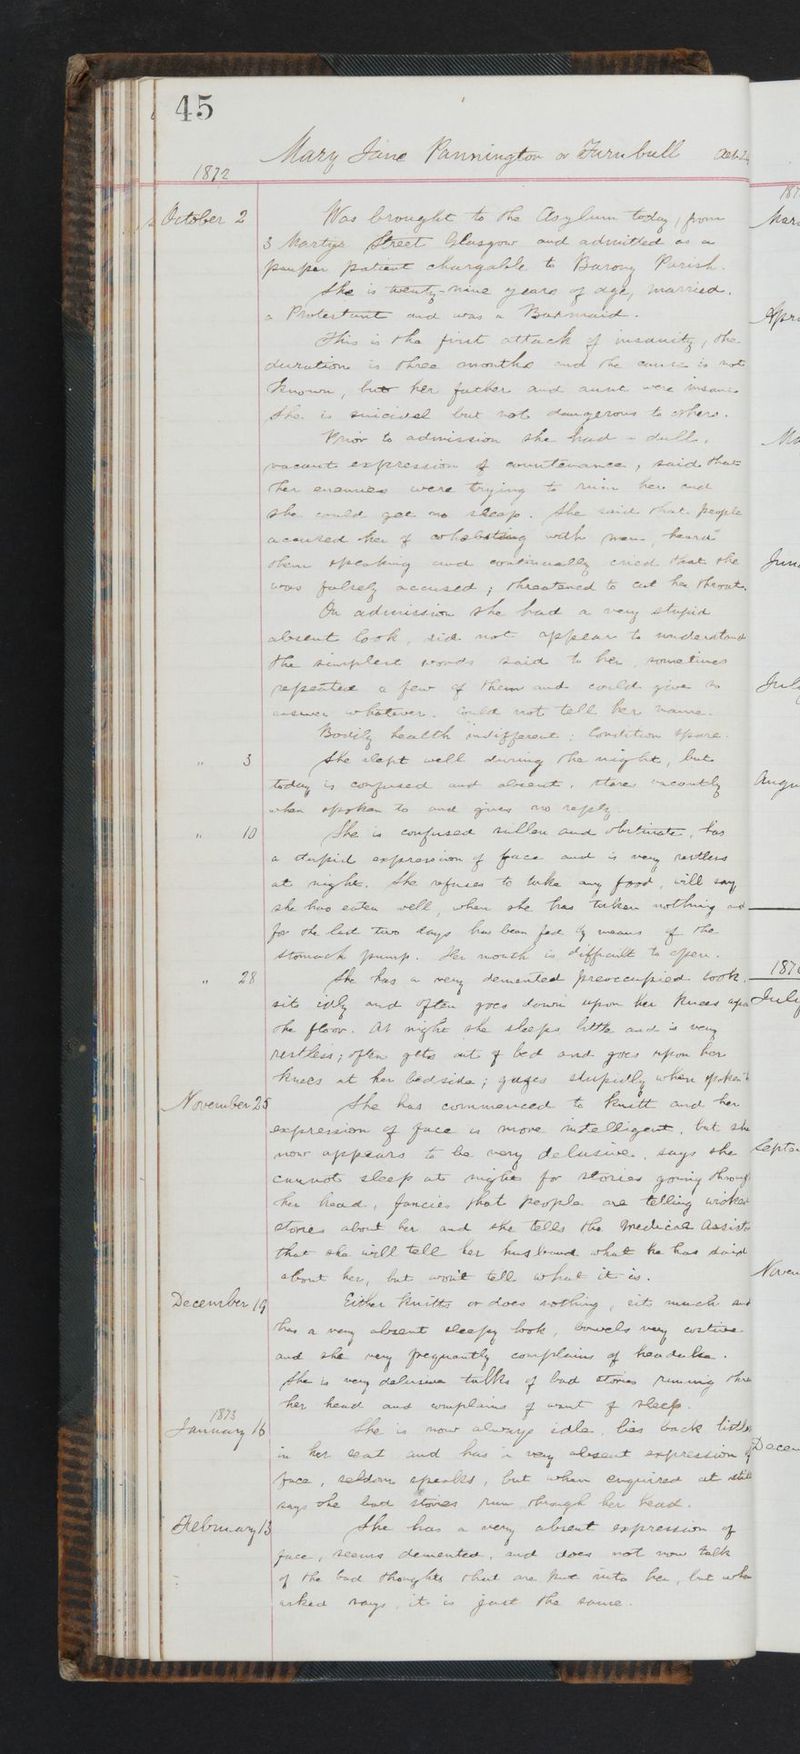 45
Mary Jane Pannington or Turnbull
1872
October 2 Was brought to the Asylum today, from
3 Martyr Street Glasgow and admitted as a
pauper patient chargable to Barony Parish.
She is twenty-nine years of age, married,
a Protestant and was a Barmaid.
This is the first attack of insanity, the
duration is three months and the cause is not
known, but her father and aunt were insane
She is suicidal but not dangerous to others.
Prior to admission she had a dull,
vacant expression of countenance, said that
her enemies were trying to ruin her and
she could get no sleep. She said that people
accused her of cohabiting with men, heard
them speaking and continually cried that she
was falsely accused; threatened to cut her throat.
On admission she had a very stupid
absent look, did not appear to understand
the simplest words said to her, sometimes
repeated a few of them and could give no
answer whatever. Could not tell her name.
Bodily health indifferent: Condition spare.
" 3 She slept well during the night, but
today is confused and absent, stares vacantly
when spoken to and gives no reply.
" 10 She is confused sullen and obstinate, has
a stupid expression of face and is very restless
at night. She refuses to take any food, will say
she has eaten well, when she has taken nothing and
for the last two days has been fed by means of the
stomach pump. Her mouth is difficult to open.
" 28 She has a very demented preoccupied look,
sits idly and often goes down upon her knees upo
the floor. At night she sleeps little and is very
restless; often gets out of bed and goes upon her
knees at her bedside; gazes stupidly when spoken to
November 25 She has commenced to knitt and her
expression of face is more intelligent, but she
now appears to be very delusive, says she
cannot sleep at night for stories going throug
her head, fancies that people are telling wicked
stories about her and she tells the Medical Assist
that she will tell her husband what he has said
about her, but won't tell what it is.
December 19 Either knitts or does nothing, sits much and
has a very absent sleepy look, bowels very costive
and she very frequently complains of headache.
She is very delusive talks of bad stories running thro
her head and complains of want of sleep.
1873
January 16 She is now always idle, lies back listless
in her seat and has a very absent expression of
face, seldom speaks, but when enquired at still
says the bad stories run through her head.
February 13 She has a very absent expression of
face, seems demented, and does not now talk
of the bad thoughts that are put into her, but when
asked says it is just the same.
187
Marc
Apri
Ma
June
July
Augu
1876
July
Septe
Novem
Decem